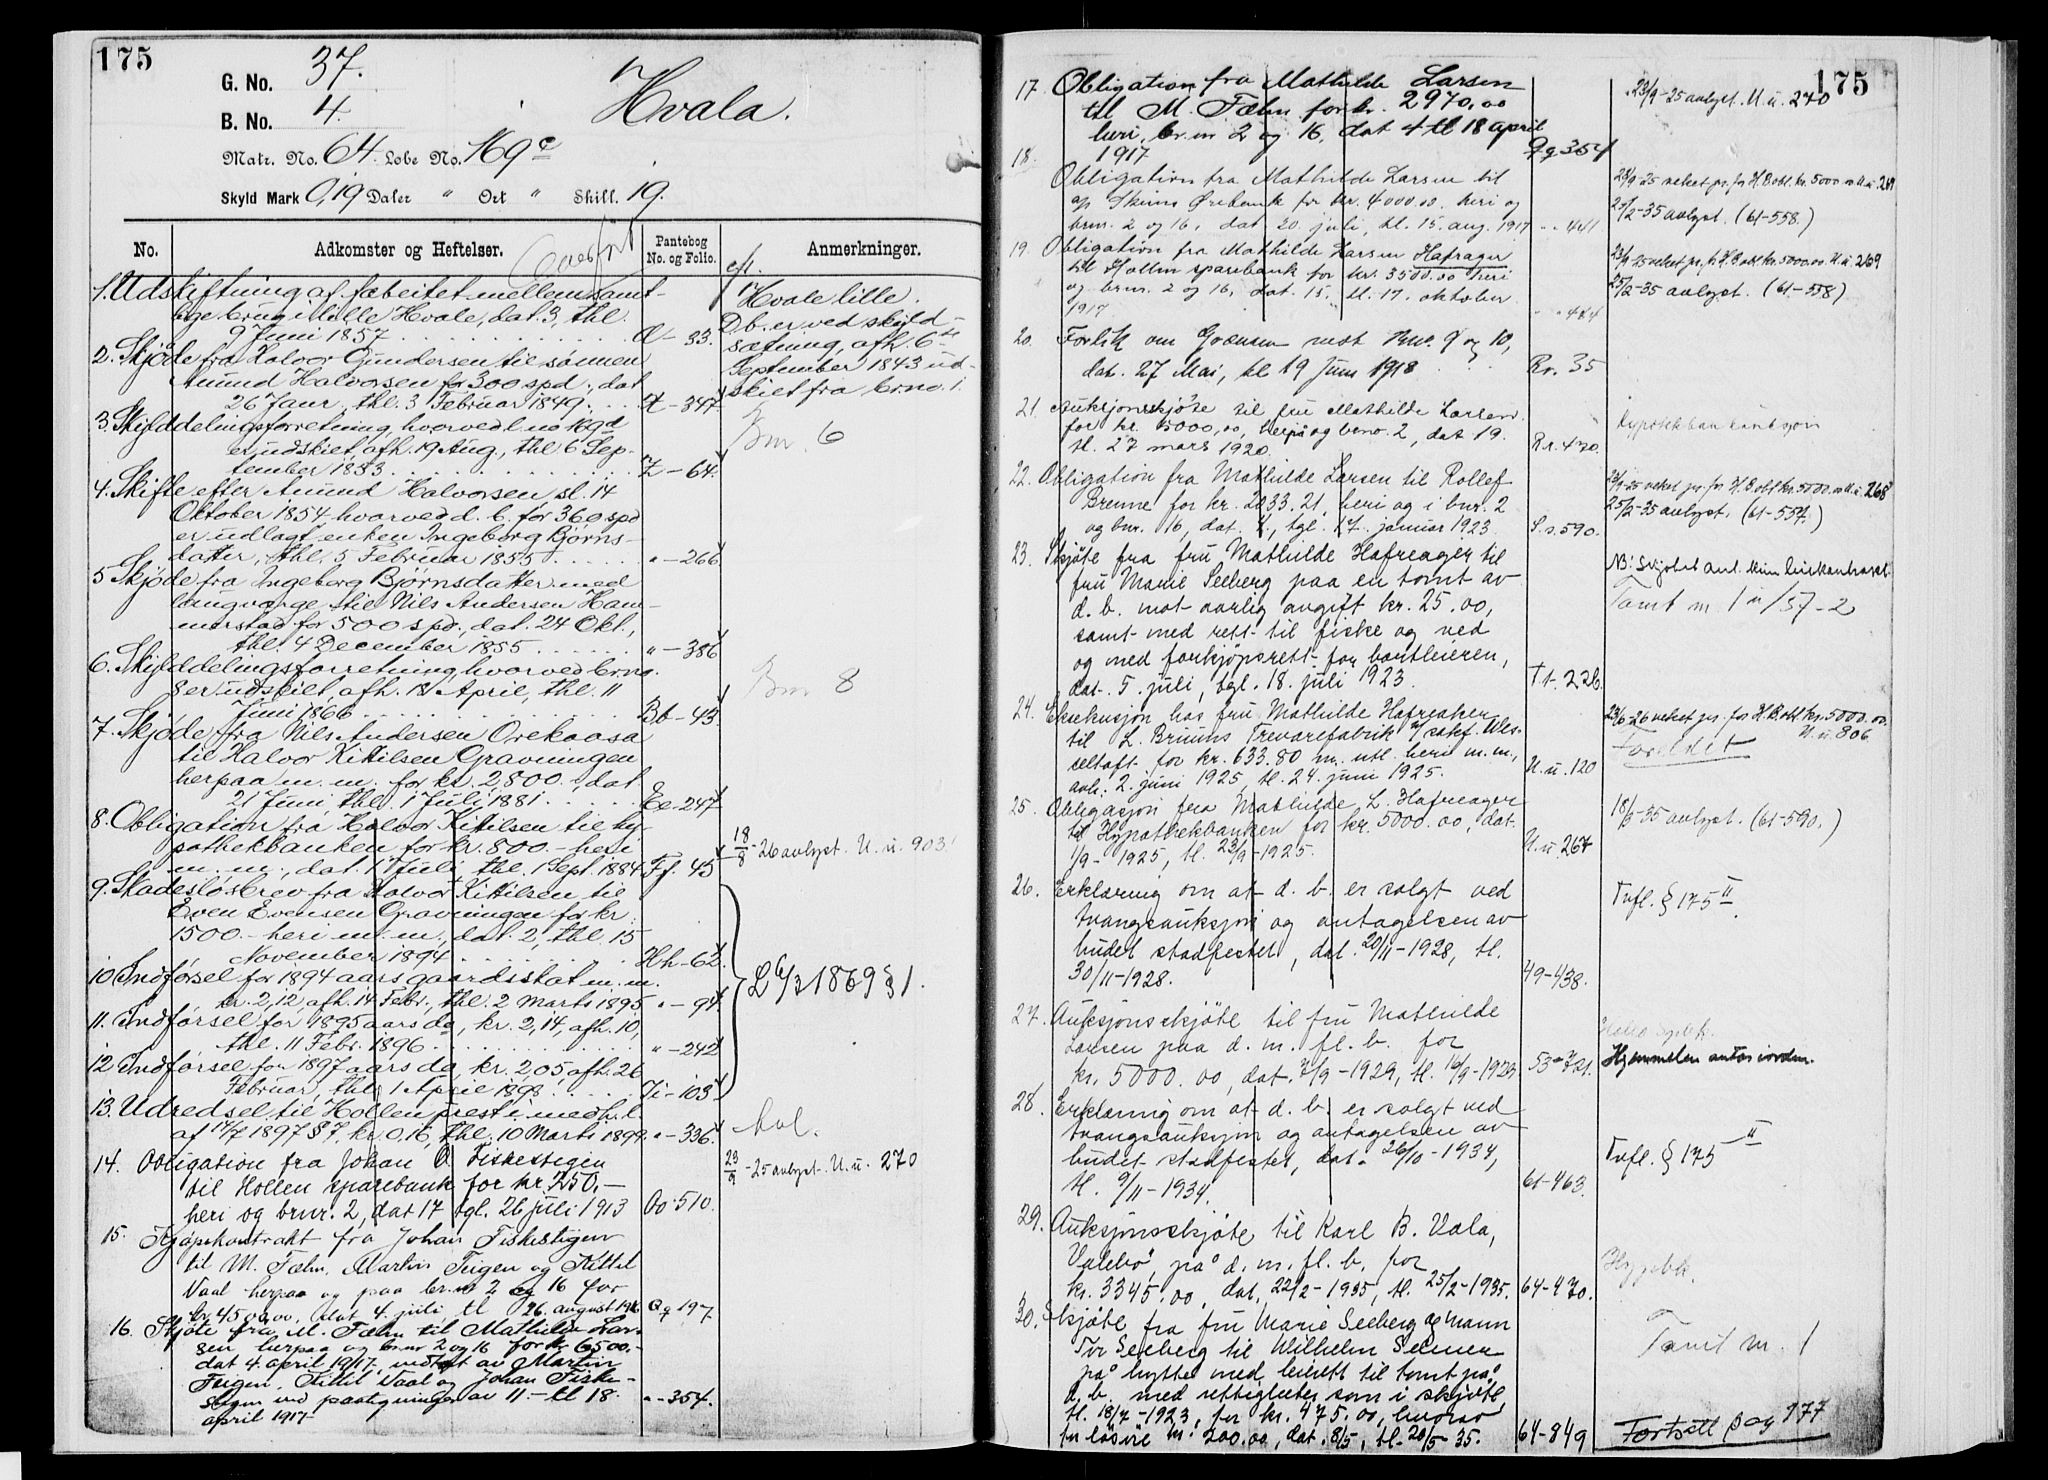 175
G. No. 37.
B. No. 4.
Hvala.
Matr. No. 64. Løbe No. 169c
Skyld Mark 0,19 Daler " Ort " Skill. 19.
No. Adkomster og Heftelser. Pantebog No. og Folio. Anmerkninger.
Overført
1. Udskiftning af fæbeitet mellem samt-
lige brug i Lille Hvale, dat. 3, thl.
9 Juni 1857
2. Skjøde fra Halvor Gundersen til sønnen
Amund Halvorsen for 300 spd., dat
26 Janr, thl. 3 Februar 1849. - 347
3. Skylddelingsforretning, hvorved l. no 169d
er udskiet, afh. 19 Aug., thl. 6 Sep-
tember 1853 Z - 64
4. Skifte efter Amund Halvorsen sl. 14
Oktober 1854 hvorved d. b. for 360 spd
er udlagt enken Ingeborg Bjørns-
datter, thl. 5 Februar 1855 " - 266
5. Skjøde fra Ingeborg Bjørnsdatter med
laugværge til Nils Andersen Ham-
merstad for 500 spd., dat. 24 Okt.,
thl. 4 December 1855 " - 386
6. Skylddelingsforretning, hvorved brno.
8 er udskiet, afh. 18 April, thl. 11
Juni 1866 Bb - 43
7. Skjøde fra Nils Andersen Orekaasa
til Halvor Kittilsen Gravningen
herpaa m. m. for kr. 2,800.-, dat
21 Juni, thl. 1 Juli 1881. Ee - 247
8. Obligation fra Halvor Kittilsen til hy-
pothekbanken for kr. 800.- heri
m. m., dat. 1 Juli, thl. 1 Sept. 1884 Ff. 45
9. Skadesløsbrev fra Halvor Kittilsen til
Even Evensen Gravningen for kr.
1500.- heri m. m., dat. 2, thl. 15
November 1894 Hh - 62
10. Indførsel for 1894 aars gaardsskat m. m.
kr. 2,12, afh. 14 Febr., thl. 2 Marts 1895 " - 94
11. Indførsel for 1895 aars do, kr. 2,14, afh. 10,
thl. 11 Febr. 1896 " - 242
12. Indførsel for 1897 aars do, kr. 2.05 afh. 26
Februar, thl. 1 April 1898 Ii - 103
13. Udredsel til Hollen prest i medh. l.
af 14/7 1897 § 7, kr. 0,16, thl. 10 Marts 1899. " - 336
14. Obligation fra Johan O. Fiskestigen
til Hollen sparebank for kr. 250,-
heri og brnr. 2, dat 17 tgl. 26 juli 1913 Oo 510.
15. Kjøpekontrakt fra Johan Fiskestigen
til M. Fæhn, Martin Teigen og Kittil
Vaal herpaa og paa br.nr 2 og 16 for
kr 4500,00, dat 4. juli tl 26. august 1916 Qq 197
16. Skjøte fra M. Fæhn til Mathilde Lar-
sen herpaa og br.nr 2 og 16 for kr 6500.-
dat 4. april 1917, vedtatt av Martin
Teigen, Kittil Vaal og Johan Fiske-
stigen ved paategninger av 11.- tl 18.
april 1917 " - 354.
efl.
Hvale lille.
D. b. er ved skyld-
sætning, afh. 6te
September 1843 ud-
skiet fra brno. 1.
Bnr. 6
Bnr 8
18/8 - 26 avlyst. U. u. 903
L 6/3 1869 § 1.
23/9 - 25 avlyst. U. u. 270
175
17. Obligation fra Mathilde Larsen
til M. Fæhn for kr. 2970,00
heri, br.nr 2 og 16, dat 4 tl 18 april
1917 Qq 354
23/9-25 avlyst. U. u. 270
18. Obligation fra Mathilde Larsen til
Skiens Ørebank for kr. 4000.00 heri og
brnr. 2 og 16, dat 20. juli, tl. 15. aug. 1917 " - 441
23/9-25 veket pr. for H.B. obl. kr. 5000.00 U. u. 269
25/2-35 avlyst. (61-558.)
19. Obligation fra Mathilde Larsen Hafrager
til Hollen sparebank for kr. 3500.00 heri
og brnr. 2 og 16, dat. 15. tl. 17. oktober
1917 " - 484
23/9-25 veket pr. for H.B. obl. kr. 5000.00. U. u. 269
25/2-35 avlyst. (61-558)
20. Forlik om Grænsen mot bno. 9 og 10,
dat. 27 Mai, tl 19 Juni 1918 Rr. 35
21. Auksjonsskjøte til fru Mathilde Larsen
for kr. 5000,00, herpå og brno. 2, dat 19.
tl. 27 mars 1920. R.r. 470.
22. Obligation fra Mathilde Larsen til Rollef
Brenne for kr. 2033.21, heri og i bnr. 2
og bnr. 16, dat. 1., tgl. 17. januar 1923 S.s. 590.
23/9-25 veket pr. for H.B. obl. kr. 5000.00 U. u. 268
25/2-35 avlyst. (61-557.)
23. Skjøte fra fru Mathilde Hafreager til
fru Marie Seeberg paa en tomt av
d. b. mot aarlig avgift kr. 25.00,
samt med rett til fiske og ved
og med forkjøpsrett for bortleieren,
dat. 5. juli, tgl. 18. juli 1923. T t. 226.
Tomt nr. 1
24. Eksekusjon hos fru Mathilde Hafreaker
til L. Bruuns Trevarefabrik v/ sakf. Wes-
seltoft for kr. 633.80 m. utl. heri m. m.,
avh. 2. juni 1925, tl. 24. juni 1925. U. u. 120
23/6-26 veket pr. for H.B. obl. kr. 5000.00.
U. u. 806.
Foreldet
25. Obligasjon fra Mathilde L. Hafreager
til Hypothekbanken for kr. 5000.00, dat.
1/9-1925, tl. 23/9-1925. U. u. 267
18/6-35 avlyst. (61-590.)
26. Erklæring om at d. b. er solgt ved
tvangsauksjon og antagelsen av
budet stadfestet, dat. 20/11-1928, tl.
30/11-1928. 49-438.
Tvfl. § 175 II.
27. Auksjonsskjøte til fru Mathilde
Larsen paa d. m. fl. b. for
kr. 5000.00, dat. 7/9-1929, tl. 16/9-1929
Hjemmelen
28. Erklæring om at d. b. er solgt ved
tvangsauksjon og antagelsen av
budet stadfestet, dat. 26/10-1934,
tl. 9/11-1934. 61-463.
Tvfl. § 175 II
29. Auksjonsskjøte til Karl B. Vala,
Valebø, på d. m. fl. b. for
kr. 3345.00, dat. 22/2-1935, tl. 25/2-1935. 64-470.
Hypbk.
30. Skjøte fra fru Marie Seeberg og mann
Tor Seeberg til Wilhelm Selmer
på hytte med leierett til tomt på
d. b. med rettigheter som i skjøte,
tl. 18/7-1923, for kr. 475.00, hvorav
for løsøre kr. 200.00, dat. 8/5, tl. 20/5-35. 64-849
Tomt nr. 1
Fortsett pag 177